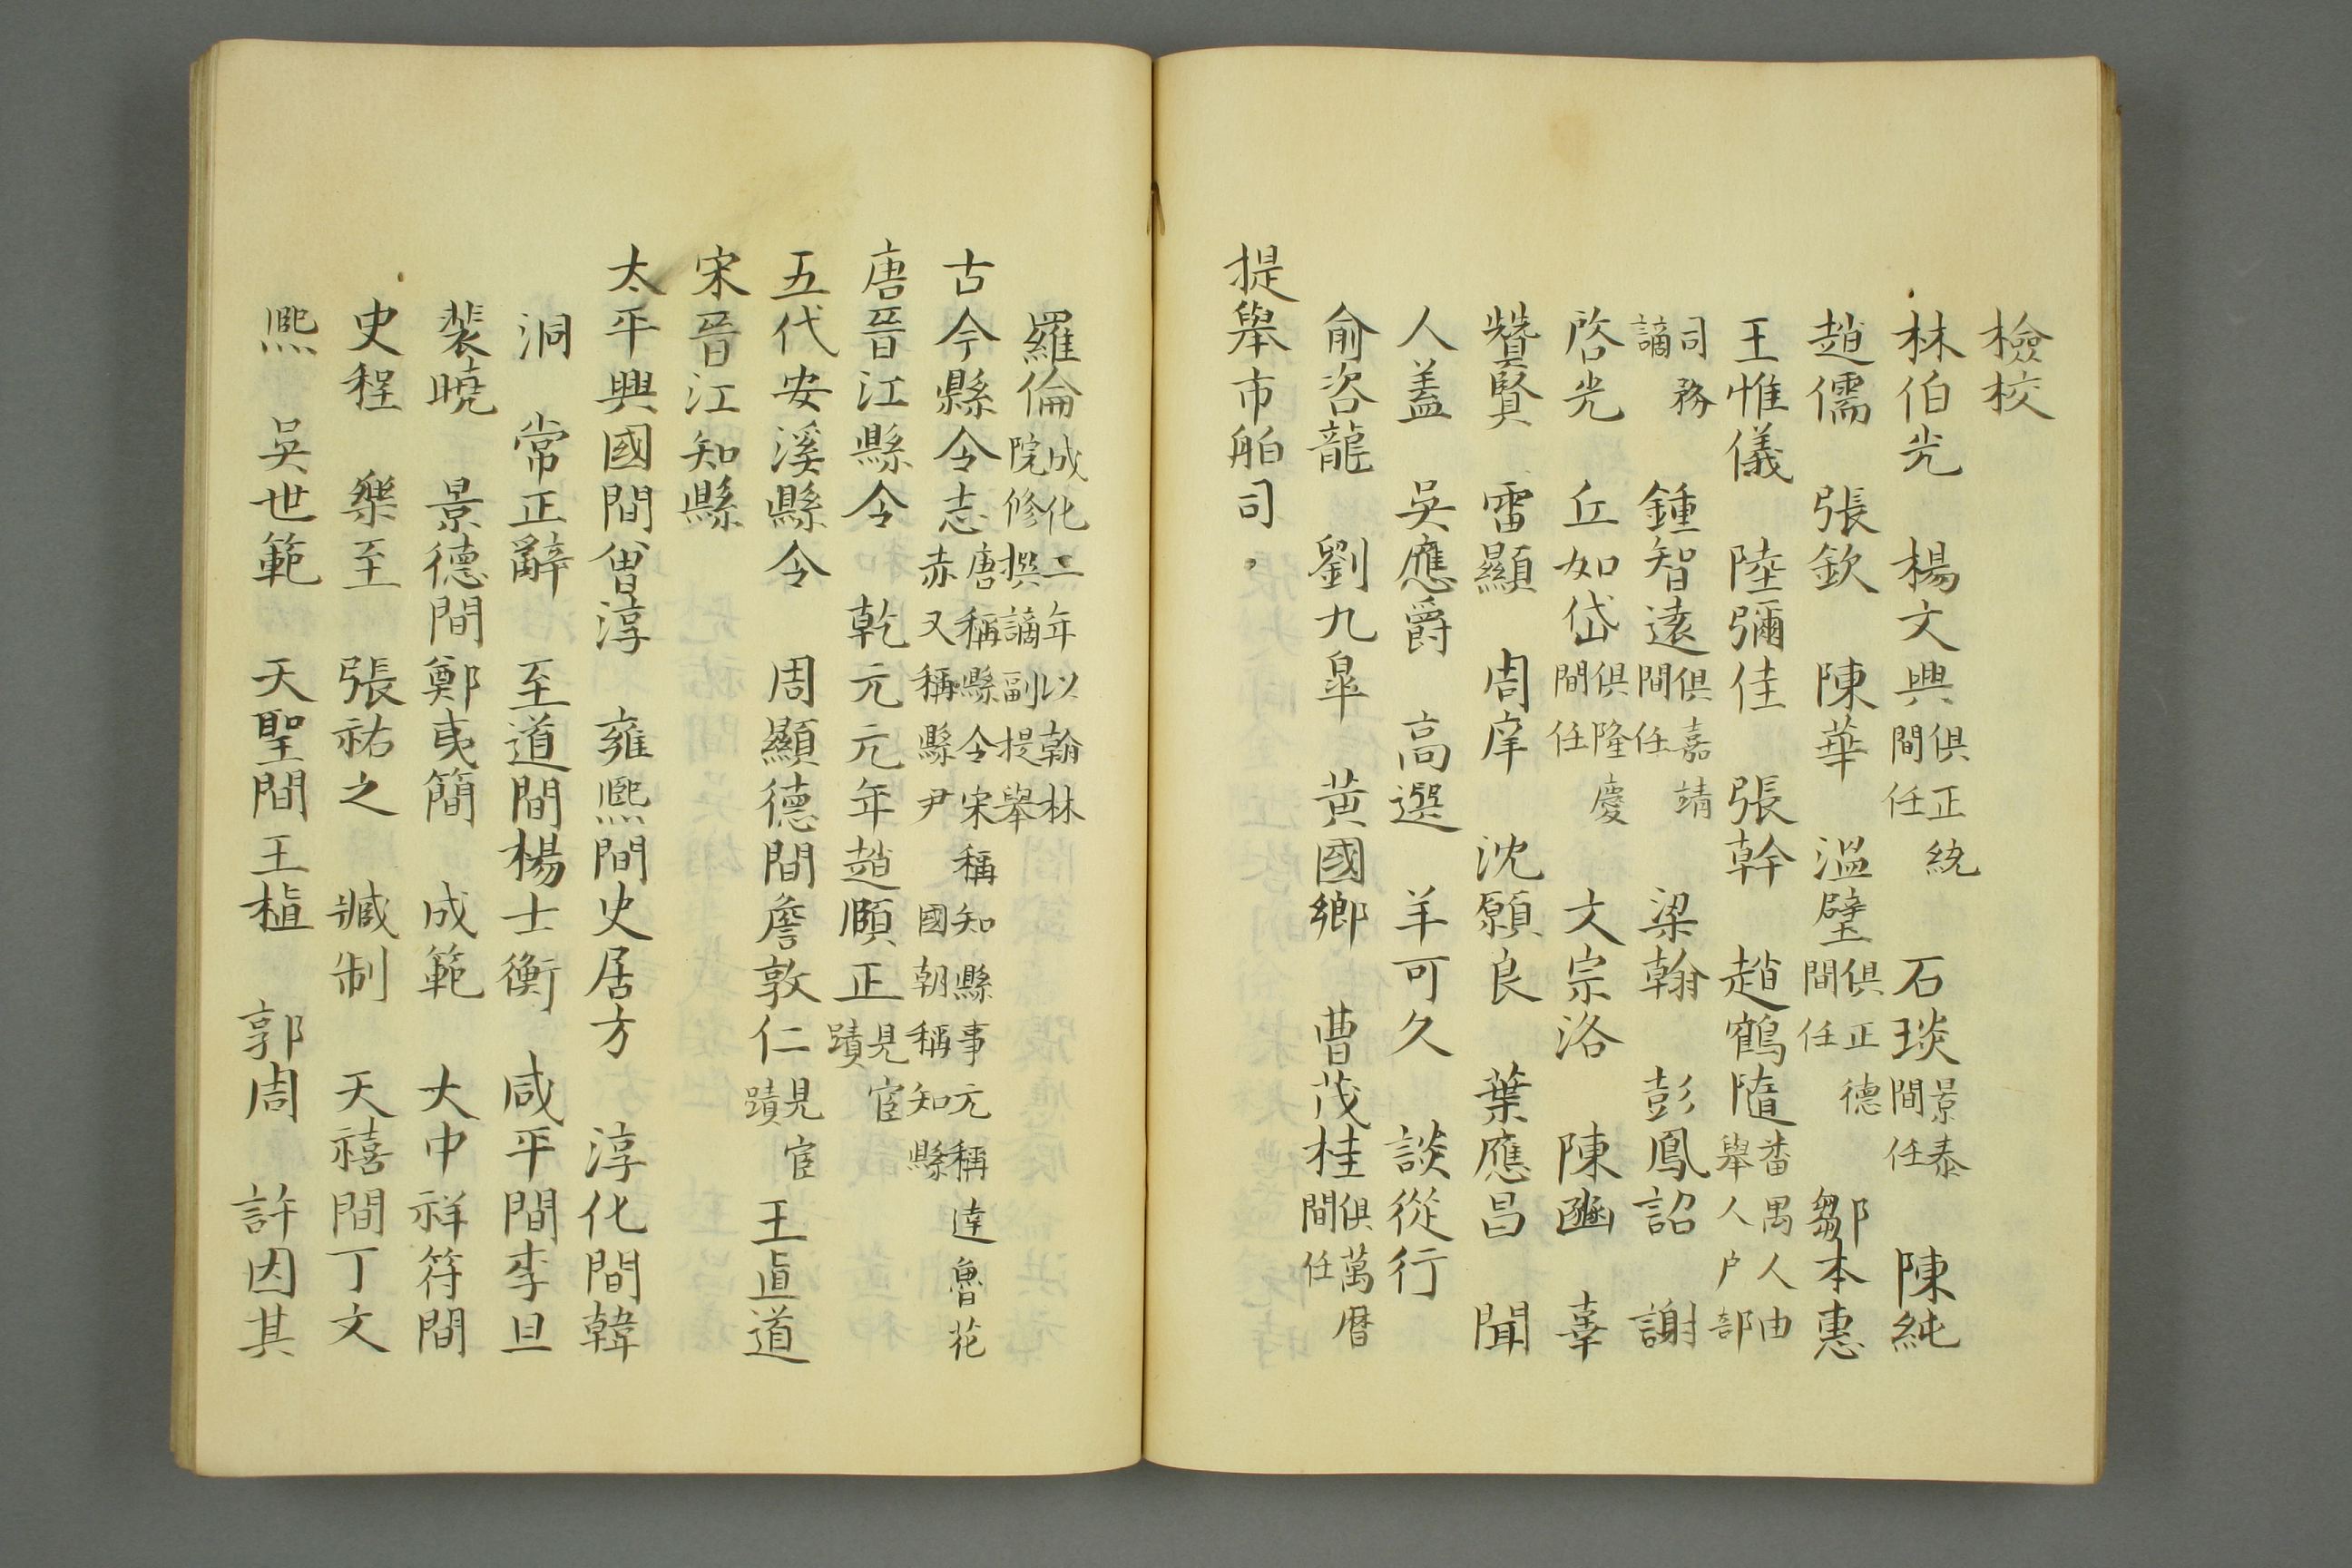 檢校
林伯光　楊文興俱正統間任　石琰景泰間任　陳純
趙儒　張欽　陳華　溫璧俱正德間任　鄒本惠
王惟儀　陸彌佳　張幹　趙鶴隨番禺人由舉人户部
司務謫　鍾智遠俱嘉靖間任　梁翰　彭鳳詔　謝
啓光　丘如岱俱隆慶間任　文宗洛　陳豳　辜
贊賢　雷顯　周庠　沈願良　葉應昌　聞
人蓋　吳應爵　高選　羊可久　談從行
俞咨龍　劉九皐　黃國鄉　曹茂桂俱萬曆間任
提舉市舶司
羅倫成化二年以翰林院修撰謫副提舉
古今縣令志唐稱縣令宋稱知縣事元稱達魯花赤又稱縣尹國朝稱知縣
唐晉江縣令　乾元元年趙頤正見宦蹟
五代安溪縣令　周顯德間詹敦仁見宦蹟　王直道
宋晉江知縣
太平興國間曾淳　雍熈間史居方　淳化間韓
洞　常正辭　至道間楊士衡　咸平間李旦
裴曉　景德間鄭夷簡　成範　大中祥符間
史程　樂至　張祐之　臧制　天禧間丁文
熈　吳世範　天聖間王植　郭周　許因其